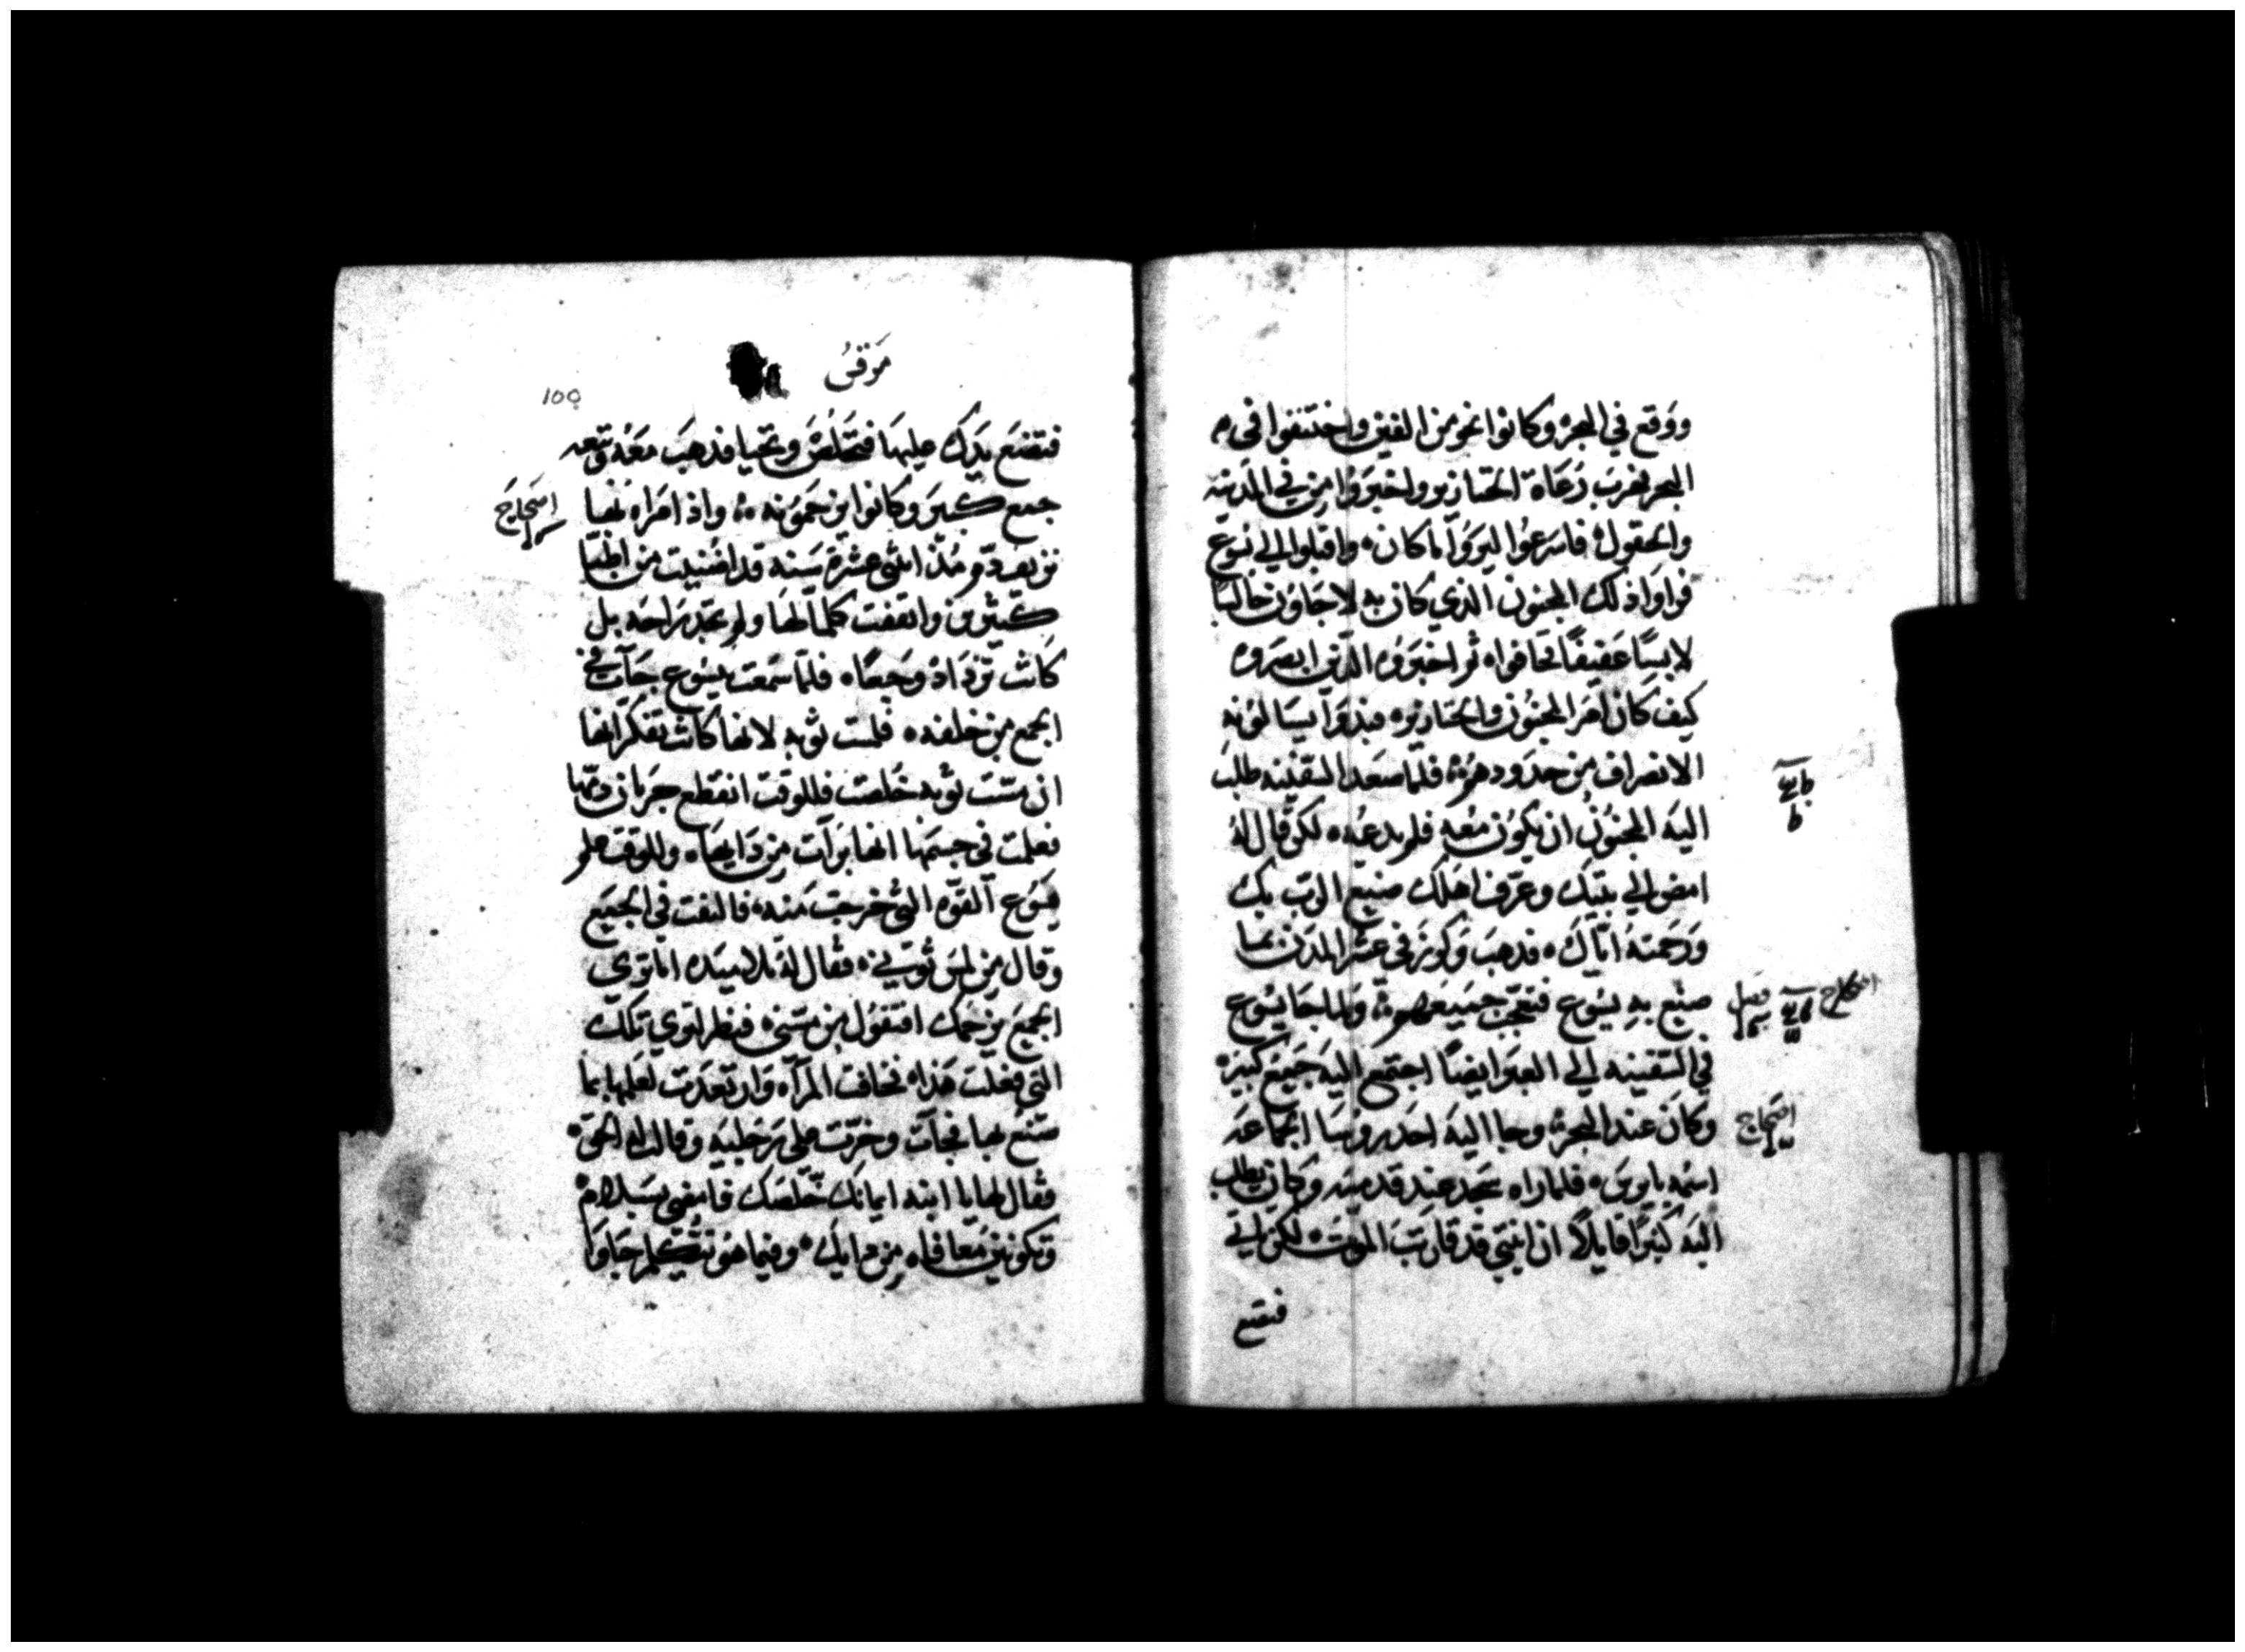 ووقع في البحر وكانوا نحو من الفين واختنقوا في م
البحر فهرب رعاة الخنازير واخبروا من في المدينه
والحقول فاسرعوا ليروا ما كان واقبلوا الي يسوع
فراوا ذلك المجنون الذي كان به لاجاون جالسا
لابسا عفيفا فخافوا ثم اخبروه الذين ابصروه
كيف كان امر المجنون والخنازير فبدوا يسالونه
الانصراف من حدودهم فلما صعد السفينه طلب
اليه المجنون ان يكون معه فلم يدعه لكن قال له
امض الي بيتك وعرف اهلك صنيع الرب بك
ورحمته اياك فذهب وكرز في عشر المدن بما
صنع به يسوع فتعجب جميعهم ولما جا يسوع
في السفينه الي العبر ايضا اجتمع اليه جميع كبير
وكان عند البحر وجا اليه احد روسا الجماعه
اسمه يايرس فلما راه سجد عند قدميه وكان يطلب
اليه كثيرا قايلا ان ابنتي قد قاربت الموت لكن اتي
فتضع
فصل
اصحاح
مرقس
155
فتضع يدك عليها فتخلص وتحيا فذهب معه وتبعه
جمع كبير وكانوا يزحمونه واذ امراه بها
اصحاح
نزيف دم مذ اثني عشرة سنه قد افنيت من اطبا
كثيرون وانفقت كلما لها ولم تجد راحه بل
كانت تزداد وجعا فلما سمعت بيسوع جات في
الجمع من خلفه فلمست ثوبه لانها كانت تفكر انها
ان مسست ثوبه خلصت فللوقت انقطع جريان دمها
فعلمت في جسمها انها برات من دايها وللوقت علم
يسوع القوه التي خرجت منه فالتفت في الجميع
وقال من لمس ثوبي فقال له تلاميذه اما تري
الجميع يزحمك افتقول من مسني فنظر ليري تلك
التي فعلت هذا فخافت المراه وارتعدت لعلمها بما
صنع بها فجات وخرت علي رجليه وقالت له الحق
فقال لها يا ابنه ايمانك خلصك فامضي بسلام
وتكونين معافاه من دايك وفيما هو يتكلم جاوا